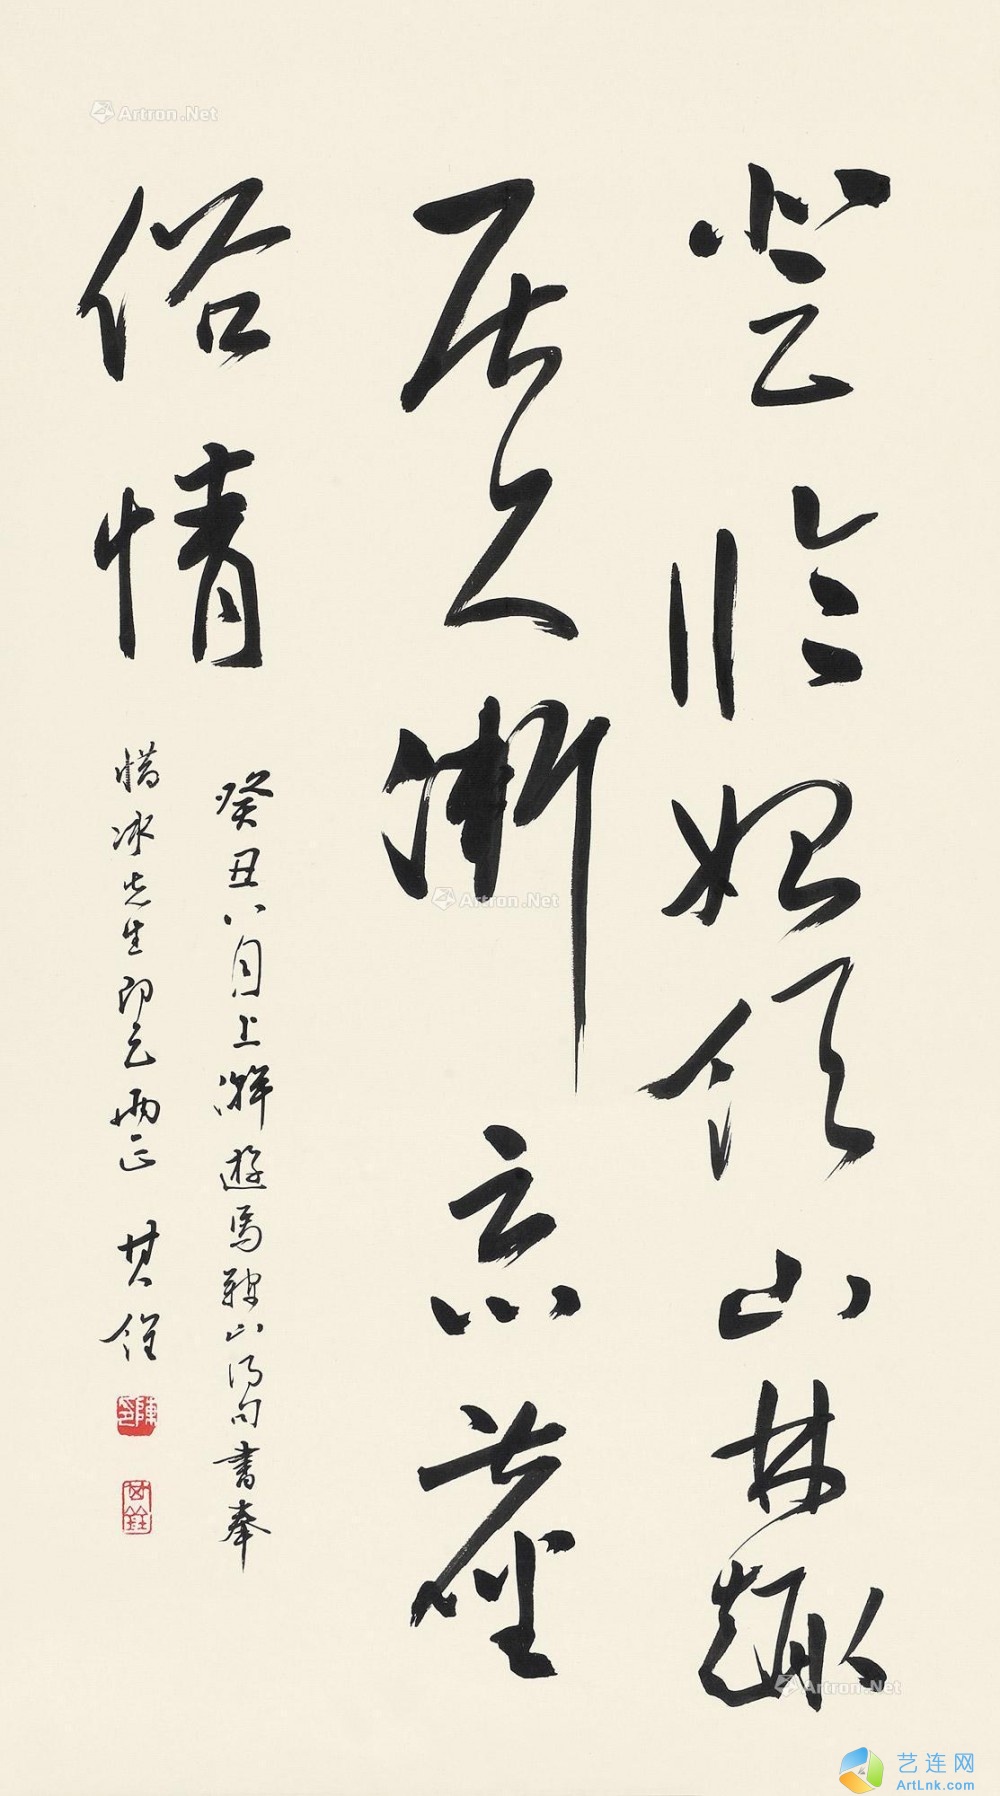 登臨始領山林趣
居久漸忘舊
俗情
癸丑八月上澣遊馬鞍山得句書奉
惜冰先生即乞兩正 其銓
Artron.Net
Artron.Net
Artron.Net
艺连网
ArtLnk.com